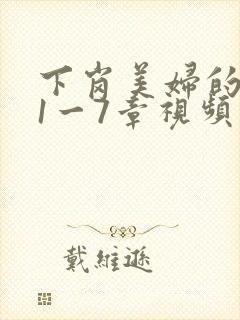 下岗美婦的
1一7章視頻
戴維遜